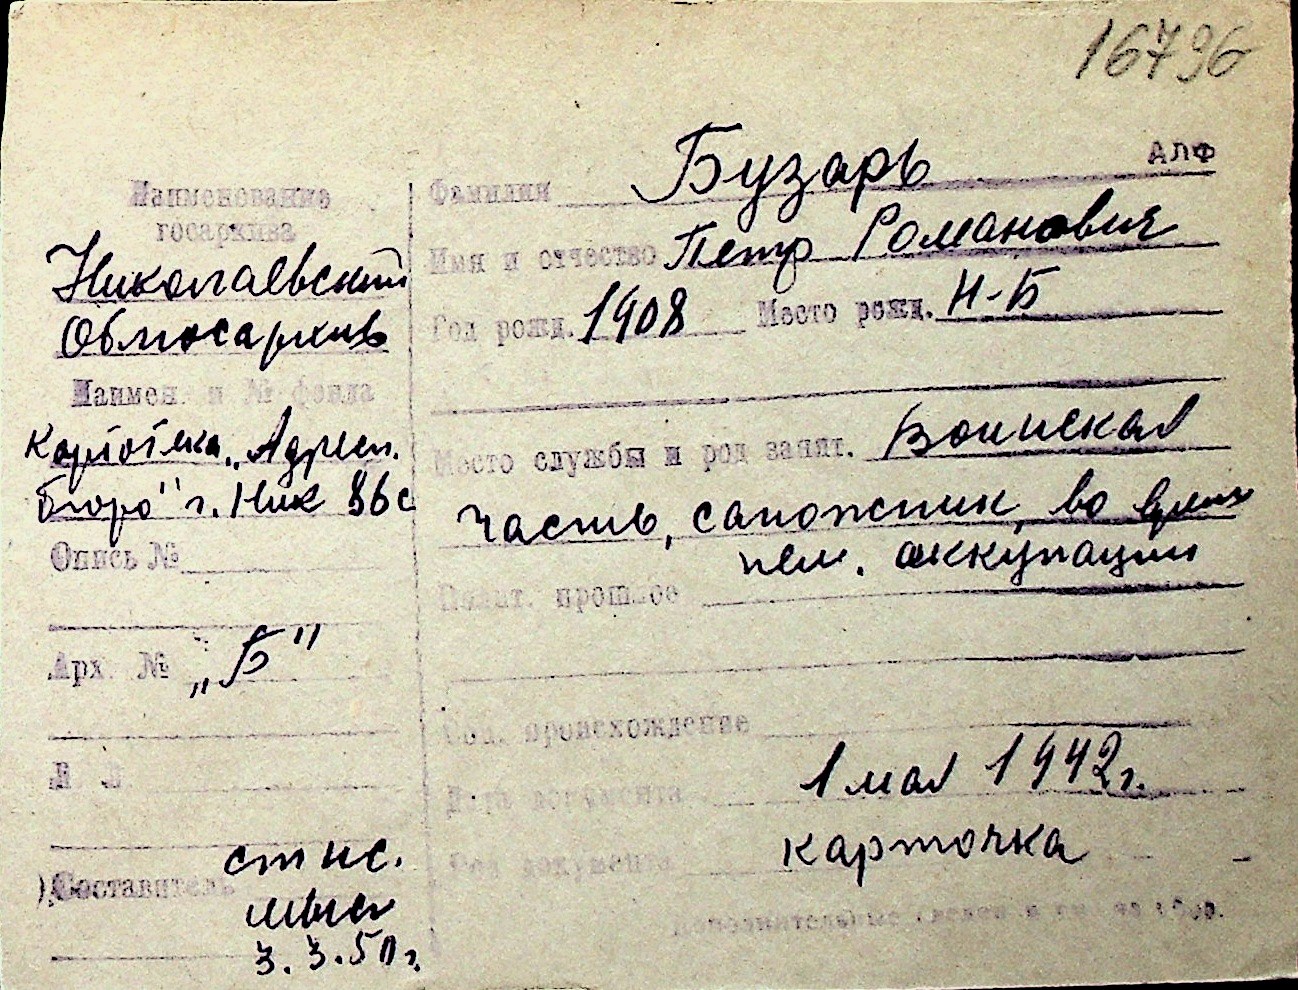 16796
АЛФ
Наименование
госархива
Николаевский
Облгосархив
Наимен. и № фонда
Картотека „Адресн.
бюро" г. Ник
Опись №
Арх. № „Б"
Л. Л.
Составитель ст нс.
3.3.50 г.
Фамилия Бузарь
Имя и отчество Петр Романович
Год рожд. 1908 Место рожд. Н-Б
Место службы и род занят. Воинская
часть, сапожник, во время
нем. оккупации
Полит. прошлое
Соц. происхождение
Дата документа 1 мая 1942 г.
Род документа карточка
Дополнительные сведен